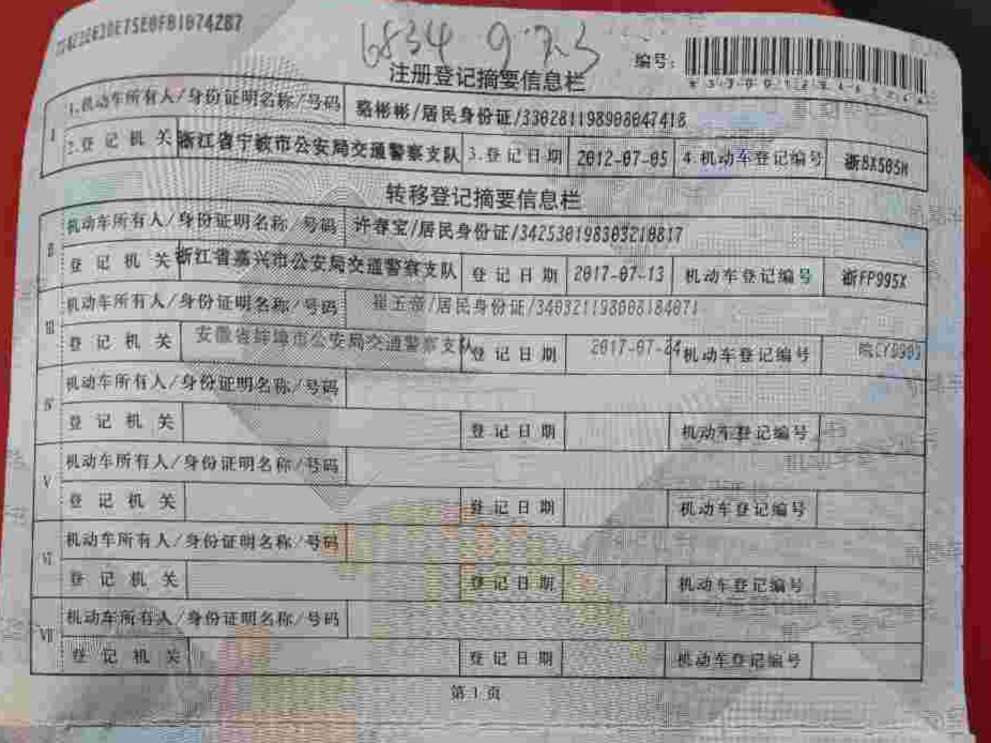 6834 9 7.3
编号:
注册登记摘要信息栏
I 1.机动车所有人/身份证明名称/号码 骆彬彬/居民身份证/330281198908047418
2.登记机关 浙江省宁波市公安局交通警察支队 3.登记日期 2012-07-05 4.机动车登记编号 浙BX505M
转移登记摘要信息栏
II 机动车所有人/身份证明名称/号码 许春宝/居民身份证/342530198303210817
登记机关 浙江省嘉兴市公安局交通警察支队 登记日期 2017-07-13 机动车登记编号 浙FP995X
III 机动车所有人/身份证明名称/号码 崔玉帝/居民身份证/340321198008184071
登记机关 安徽省蚌埠市公安局交通警察支队 登记日期 2017-07-24 机动车登记编号
IV 机动车所有人/身份证明名称/号码
登记机关 登记日期 机动车登记编号
V 机动车所有人/身份证明名称/号码
登记机关 登记日期 机动车登记编号
VI 机动车所有人/身份证明名称/号码
登记机关 登记日期 机动车登记编号
VII 机动车所有人/身份证明名称/号码
登记机关 登记日期 机动车登记编号
第1页